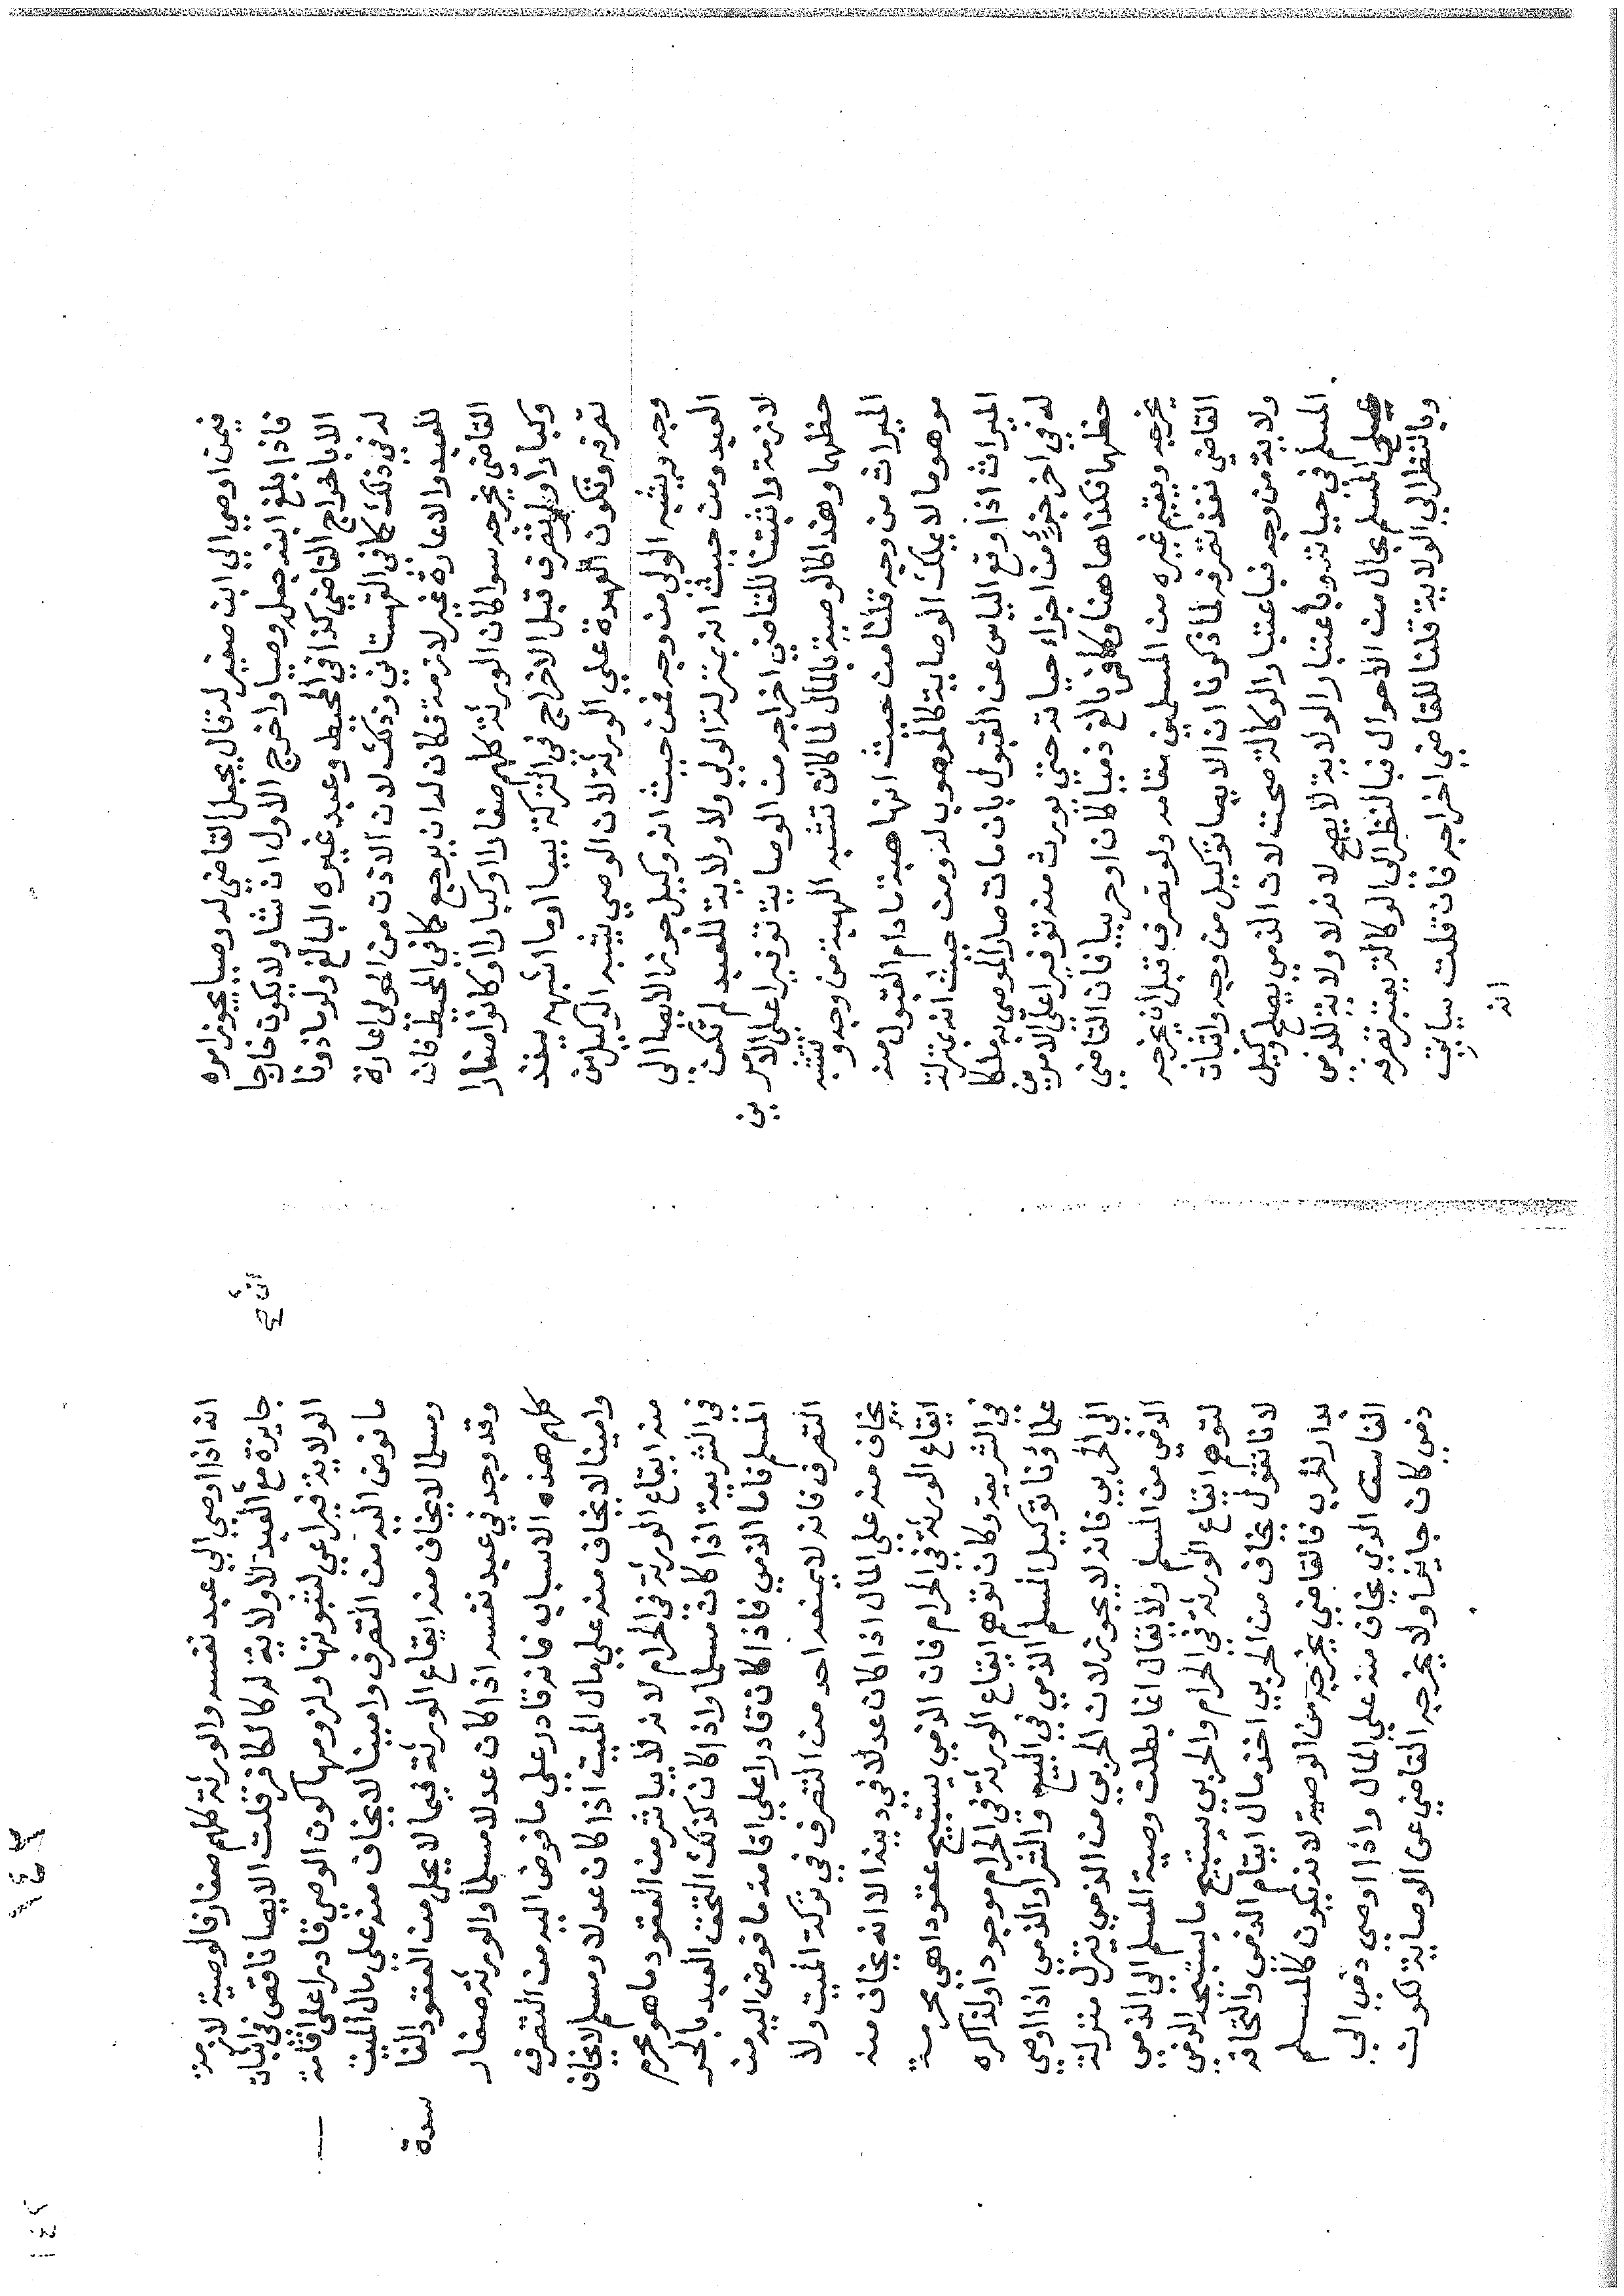 فيمن اوصي الي ابن صغير له قال يجعل القاضي له وصيا يجوز امره
فاذا بلغ ابنه جعله وصيا واخرج الاول ان شا ولا يكون خارجا
الا باخراج القاضي كذا في المحيط وعبد غيره البالغ ولو ماذونا
له في ذلك كما في القهستاني وذلك لان الاذن من المولي اعارة
للعبد والاعارة غير لازمة فكان له ان يرجع كما في المحيط فان
القاضي يخرجه سوا كان الورثة كلهم صغارا او كبارا او كانوا صغارا
وكبارا ولو تصرف قبل الاخراج في التركة بيعا او ما اشبهه ينفذ
تصرفه وتكون العهدة علي الورثة لان الوصي يشبه الوكيل من
وجه ويشبه الولي من وجه فمن حيث انه وكيل جوزنا الايصا الي
العبد ومن حيث انه بمنزلة الولي ولا ولاية للعبد لم تكن
لازمة واثبتنا للقاضي اخراجه من الوصاية توفيرا علي الامرين
حظهما وهذا كالوصية بالمال لما كانت تشبه الهبة من وجه وتشبه
الميراث من وجه قلنا من حيث انها هبة ما دام القبول منه
موهوما لا يملك الوصاية كالموهوب له ومن حيث انه بمنزلة
الميراث اذا وقع الياس عن القبول بان مات صار الموصي به ملكا
له في اخر جزء من اجزاء حياته حتي يورث منه توفيرا علي الامرين
حظهما فكذا هاهنا وكافر بالغ ذميا كان او حربيا فان القاضي
يخرجه ويقيم غيره من المسلمين مقامه ولو تصرف قبل ان يخرجه
القاضي نفذ تصرفه لما ذكرنا ان الايصا توكيل من وجه واثبات
ولاية من وجه فباعتبار الوكالة صحت لان الذمي يصلح وكيل
المسلم في حياته وباعتبار الولاية لا يصح لانه لا ولاية للذمي
علي المسلم بحال من الاحوال فبالنظر الي الوكالة يعتبر تصرفه
وبالنظر الي الولاية قلنا للقاضي اخراجه فان قلت سياتي
انه
انه اذا اوصي الي عبد نفسه والورثة كلهم صغار فالوصية لازمة
جايزة مع ان العبد لا ولاية له كالكافر قلت الايصا ناقص في اثبات
الولاية فيراعي لثبوتها ولزومها كون الوصي قادرا علي اقامة
ما فوض اليه من التصرف وامينا لا يخاف منه علي مال الميت
ومسلما لا يخاف منه ايقاع الورثة فيما لا يحل من العقود الفاسدة
وقد وجد في عبد نفسه اذا كان عدلا مسلما والورثة صغار
كلهم هذه الاسباب فانه قادر علي ما فوض اليه من التصرف
وامينا لا يخاف منه علي مال الميت اذا كان عدلا ومسلم لا يخاف
منه ايقاع الورثة في الحرام لانه لا يباشر من العقود ما هو محرم
في الشريعة اذا كان مسلما واذا كان كذلك التحق العبد بالحر
المسلم فاما الذمي فاذا كان قادرا علي اقامة ما فوض اليه من
التصرف فانه لا يمنعه احد من التصرف في تركة الميت ولا
يخاف منه علي المال اذا كان عدلا في دينه الا انه يخاف منه
ايقاع الورثة في الحرام فان الذمي يستبيح عقودا هي محرمة
في الشريعة وكان توهم ايقاع الورثة في الحرام موجودا ولذا كره
علماؤنا توكيل المسلم الذمي في البيع والشرا والذمي اذا اوصي
الي الحربي فانه لا يجوز لان الحربي من الذمي ينزل منزلة
الذمي من المسلم ولا يقال انما بطلت وصية المسلم الي الذمي
لتوهم ايقاع الورثة في الحرام والحربي يستبيح ما يستبيحه الذمي
لانا نقول يخاف من الحربي اخذ مال ايتام الذمي والتحاقه
بدار الحرب فالقاضي يخرجه من الوصية لانه يكون كالمسلم
الفاسق الذي يخاف منه علي المال واذا اوصي ذمي الي
ذمي كان جايزا ولا يخرجه القاضي عن الوصاية لكون